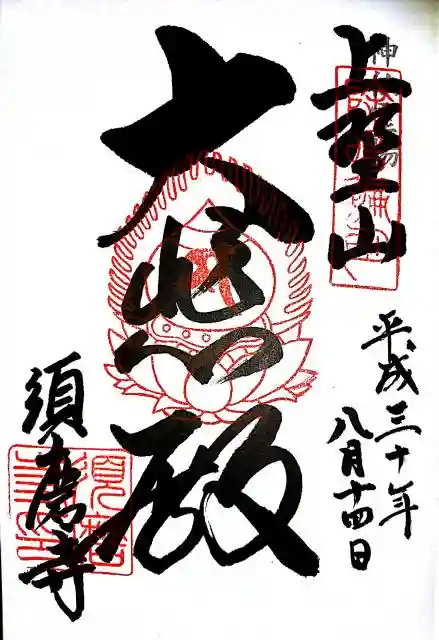 上野山
平成三十年
八月十四日
大悲殿
須磨寺